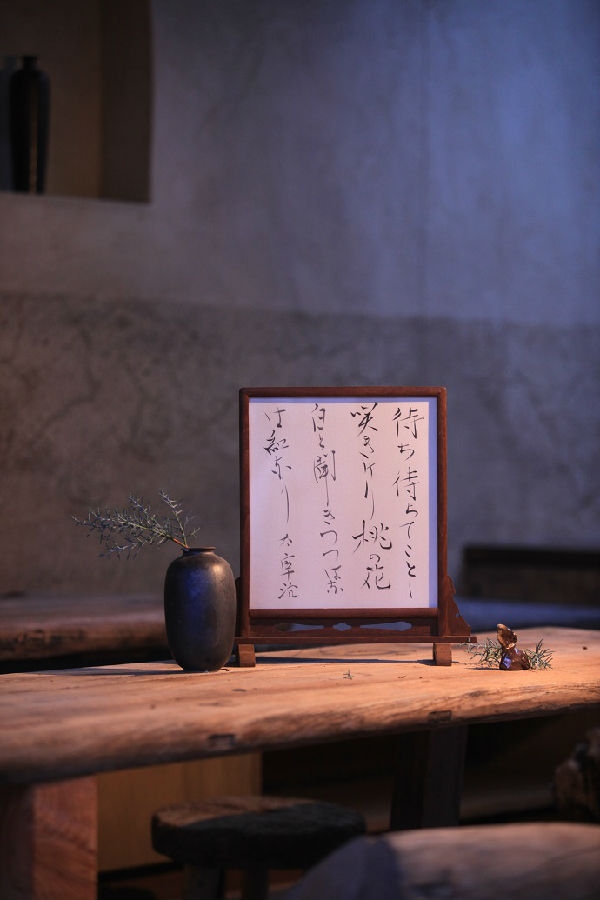 待ち待ちてことし
咲きけり桃の花
白と聞きつつはな
は紅なり 太宰治